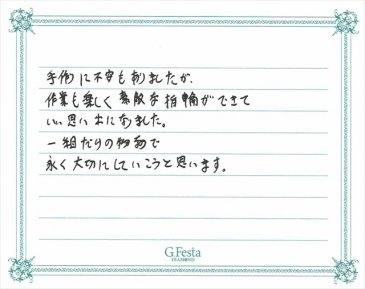 手作りに不安も有りましたが、
作業も楽しく素敵な指輪ができて
いい思い出になりました。
一組だけの物なので
永く大切にしていこうと思います。
G.Festa
DIAMOND